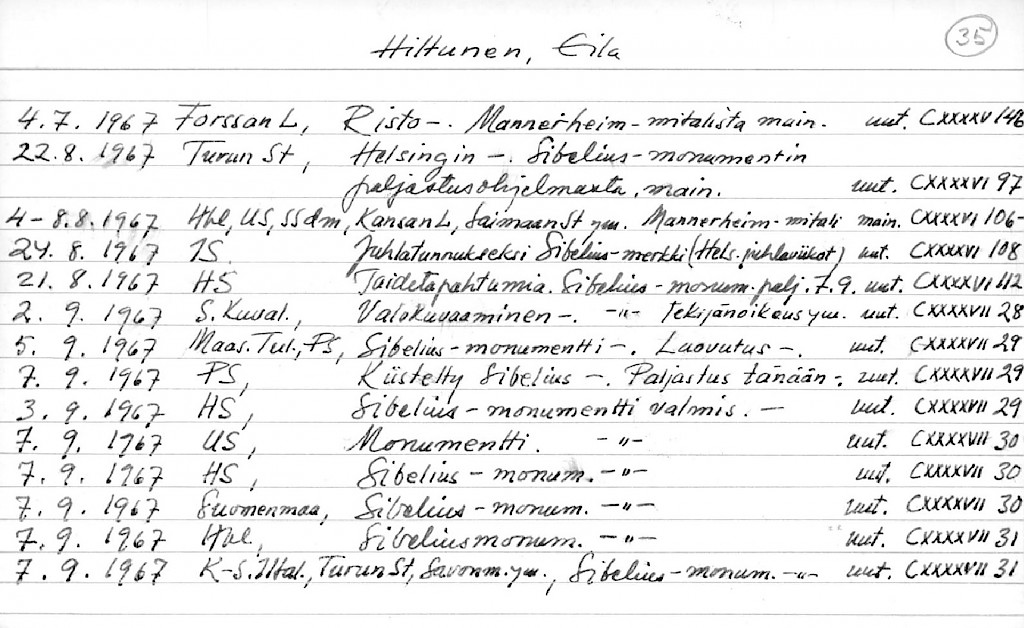 35
Hiltunen, Eila
4.7. 1967 Forssan L, Risto -. Mannerheim-mitalista main. uut. CXXXXV 146
22.8. 1967 Turun St, Helsingin -. Sibelius-monumentin
paljastusohjelmasta, main. uut. CXXXXVI 97
4-8.8.1967 Hbl, US, SSdm, Kansan L, Saimaan St ym. Mannerheim-mitali main. CXXXXVI 106-
24. 8. 1967 IS. Juhlatunnukseksi Sibelius-merkki (Hels. juhlaviikot) uut. CXXXXVI 108
21. 8. 1967 HS Taidetapahtumia. Sibelius-monum. palj. 7.9. uut. CXXXXVI 112
2. 9. 1967 S. Kuval., Valokuvaaminen -. -"- tekijänoikeus ym. uut. CXXXXVII 28
5. 9. 1967 Maas. Tul., PS, Sibelius-monumentti -. Luovutus -. uut. CXXXXVII 29
7. 9. 1967 PS, Kiistelty Sibelius -. Paljastus tänään -. uut. CXXXXVII 29
3. 9. 1967 HS, Sibelius-monumentti valmis. - uut. CXXXXVII 29
7. 9. 1967 US, Monumentti. -"- uut. CXXXXVII 30
7. 9. 1967 HS, Sibelius-monum. -"- uut. CXXXXVII 30
7. 9. 1967 Suomenmaa, Sibelius-monum. -"- uut. CXXXXVII 30
7. 9. 1967 Hbl, Sibeliusmonum. -"- uut. CXXXXVII 31
7. 9. 1967 K-S. Iltal., Turun St, Savonm. ym., Sibelius-monum. -"- uut. CXXXXVII 31